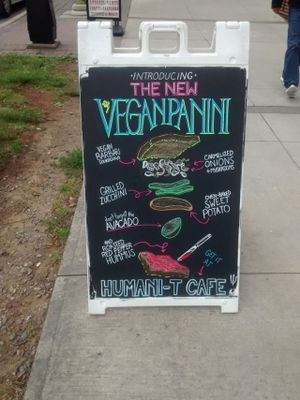 INTRODUCING
THE NEW
VEGANPANINI
VEGAN
CARMELIZED
ONIONS
+ MUSHROOMS
GRILLED
ZUCCHINI
OVEN-BAKED
SWEET
POTATO
don't forget the
AVACADO
AND
RED PEPPER
HUMMUS
GET IT
HUMANI-T CAFE